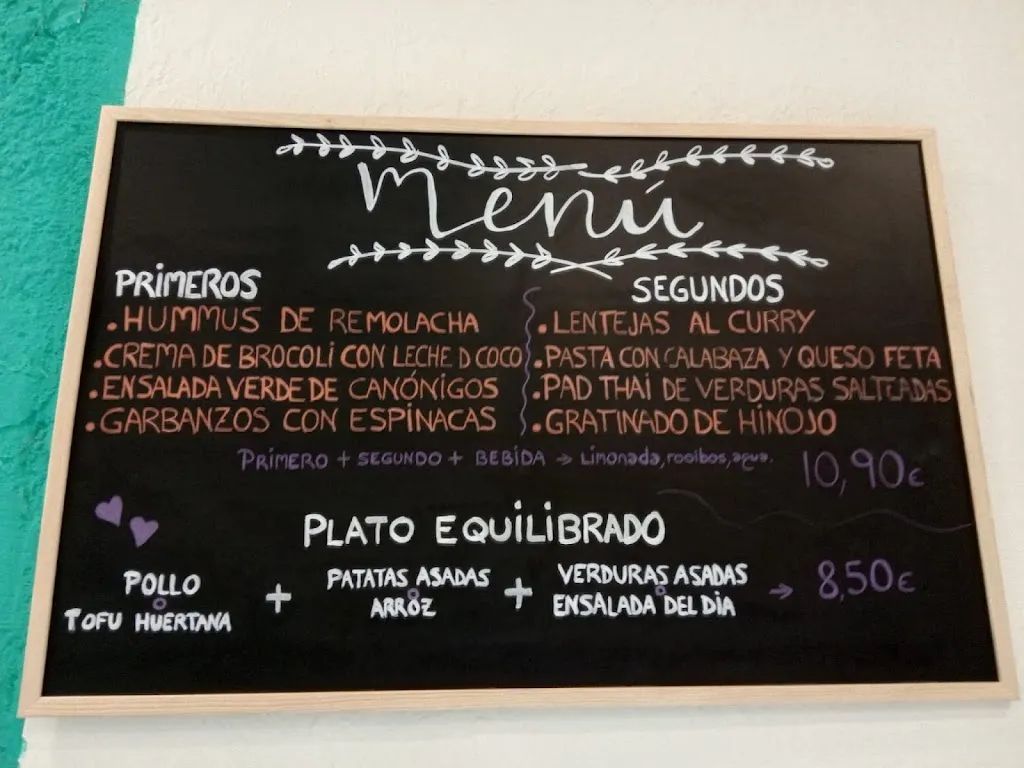 Menú
PRIMEROS
.HUMMUS DE REMOLACHA
.CREMA DE BROCOLI CON LECHE D COCO
.ENSALADA VERDE DE CANÓNIGOS
.GARBANZOS CON ESPINACAS
SEGUNDOS
.LENTEJAS AL CURRY
.PASTA CON CALABAZA Y QUESO FETA
.PAD THAI DE VERDURAS SALTEADAS
.GRATINADO DE HINOJO
PRIMERO + SEGUNDO + BEBIDA → Limonada, rooibos, agua. 10,90€
PLATO EQUILIBRADO
POLLO
o
TOFU HUERTANA
+
PATATAS ASADAS
o
ARROZ
+
VERDURAS ASADAS
o
ENSALADA DEL DIA
→ 8,50€